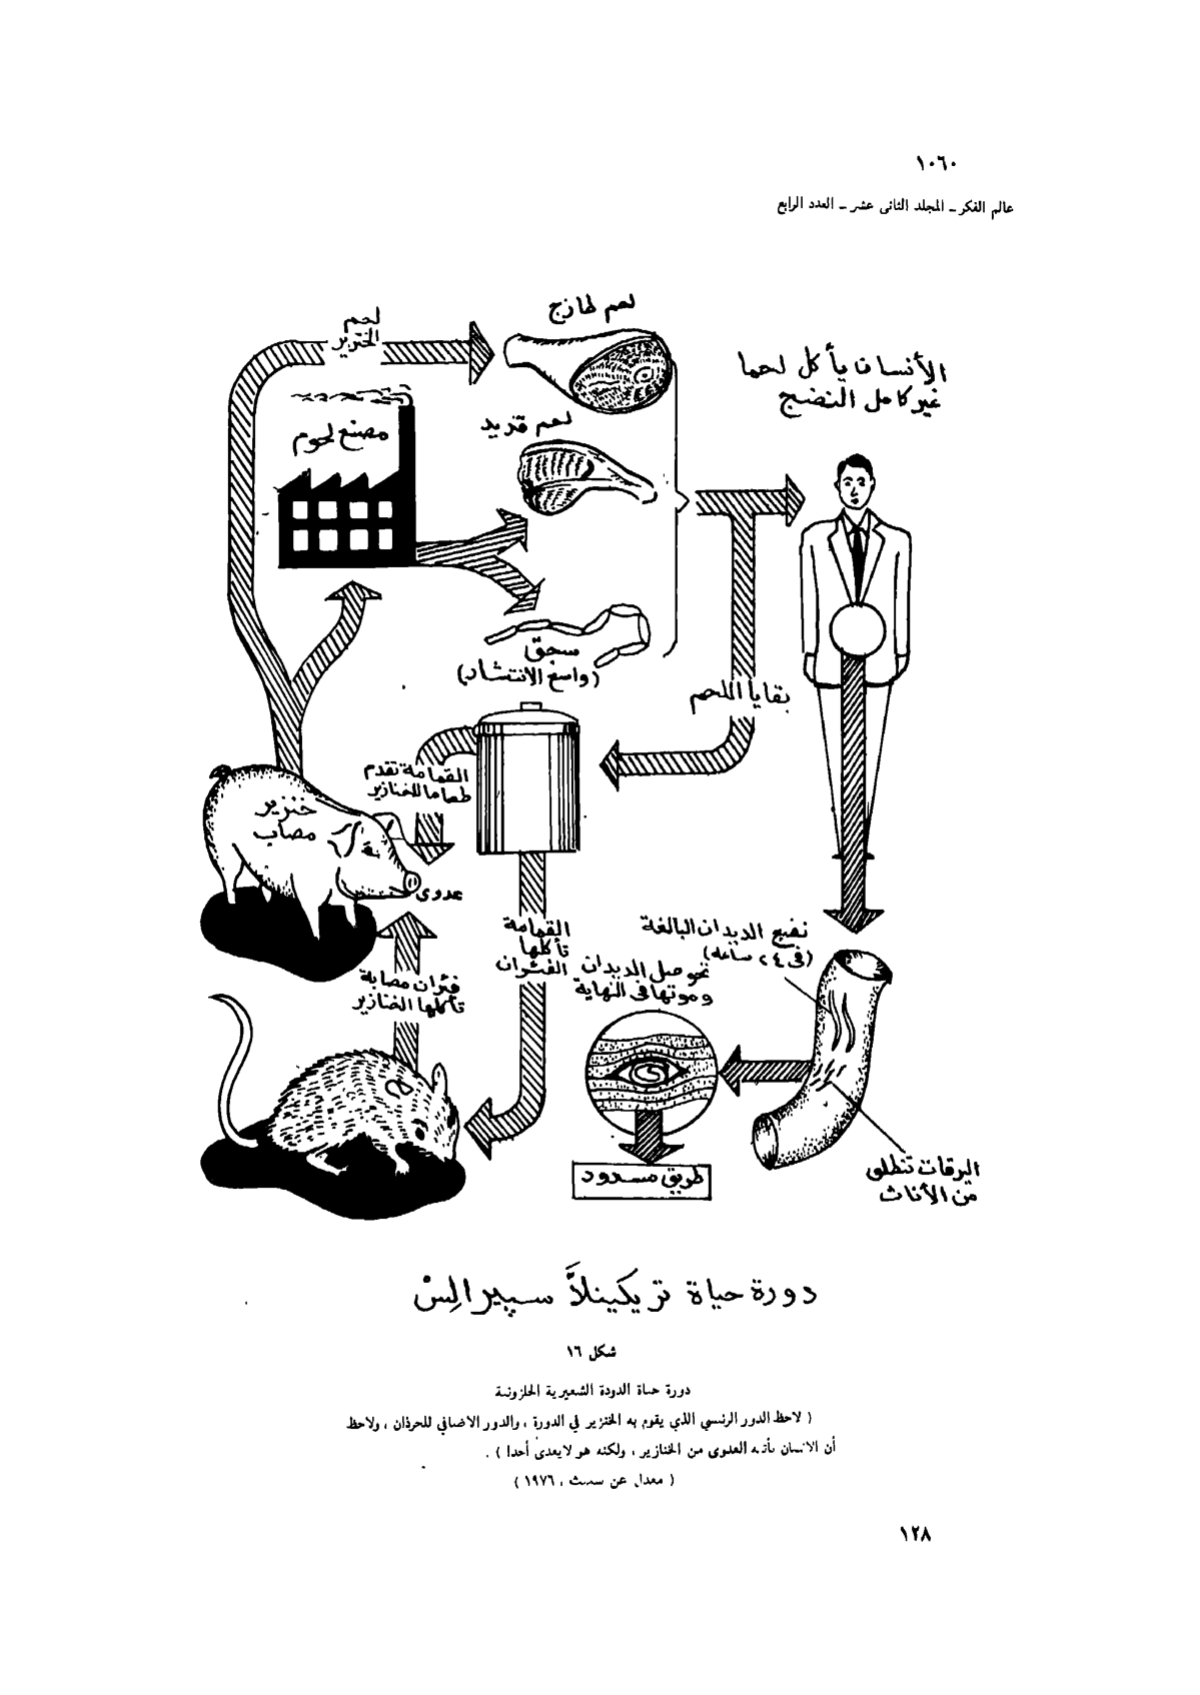 ١٠٦٠
عالم الفكر - المجلد الثاني عشر - العدد الرابع
لحم طازج
لحم
الخنزير
الأنسان يأكل لحما
غير كامل النضج
لحم قديد
مصنع لحوم
سجق
(واسع الانتشار)
بقايا اللحم
القمامة تقدم
طعاما للخنازير
خنزير
مصاب
عدوى
القمامة
تأكلها
الفئران
فئران مصابة
تأكلها الخنازير
نضج الديدان البالغة
(في ٢٤ ساعه)
تحوصل الديدان
وموتها في النهاية
طريق مسدود
اليرقات تنطلق
من الأناث
دورة حياة تريكينلاَّ سبيرالِسْ
شكل ١٦
دورة حياة الدودة الشعيرية الحلزونية
( لاحظ الدور الرئيسي الذي يقوم به الخنزير في الدورة ، والدور الاضافي للجرذان ، ولاحظ
أن الانسان تأتيه العدوى من الخنازير ، ولكنه هو لا يعدى أحدا ) .
( معدل عن سميث ، ١٩٧٦ )
١٢٨